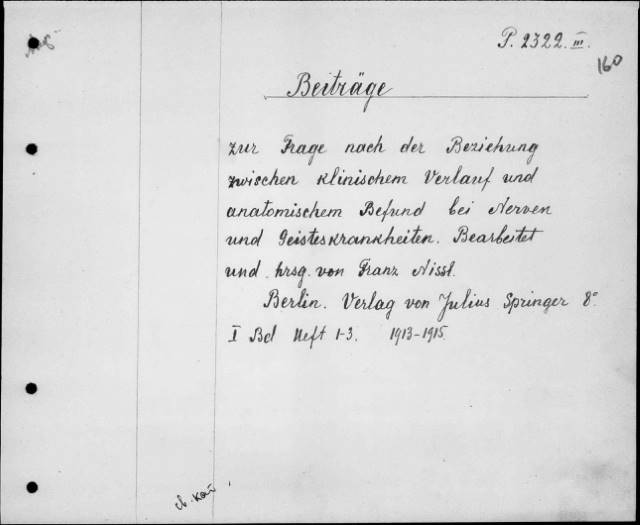 P. 2322. III.
160
Beiträge
zur Frage nach der Beziehung
zwischen klinischem Verlauf und
anatomischem Befund bei Nerven
und Geisteskrankheiten. Bearbeitet
und hrsg. von Franz Nissl.
Berlin. Verlag von Julius Springer 8°
I Bd Heft 1-3. 1913-1915